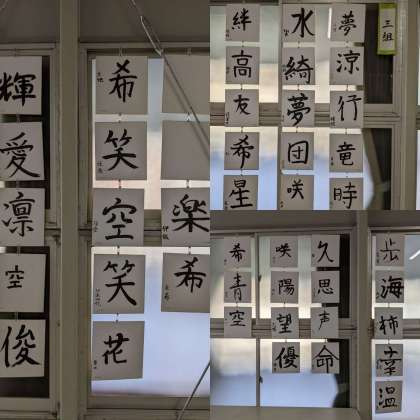 楽希
希笑空笑花
輝愛凛空俊
三組
夢涼行竜時
水綺夢団咲
絆高友希星
歩海柿幸温
久思声命
咲陽望優
希青空